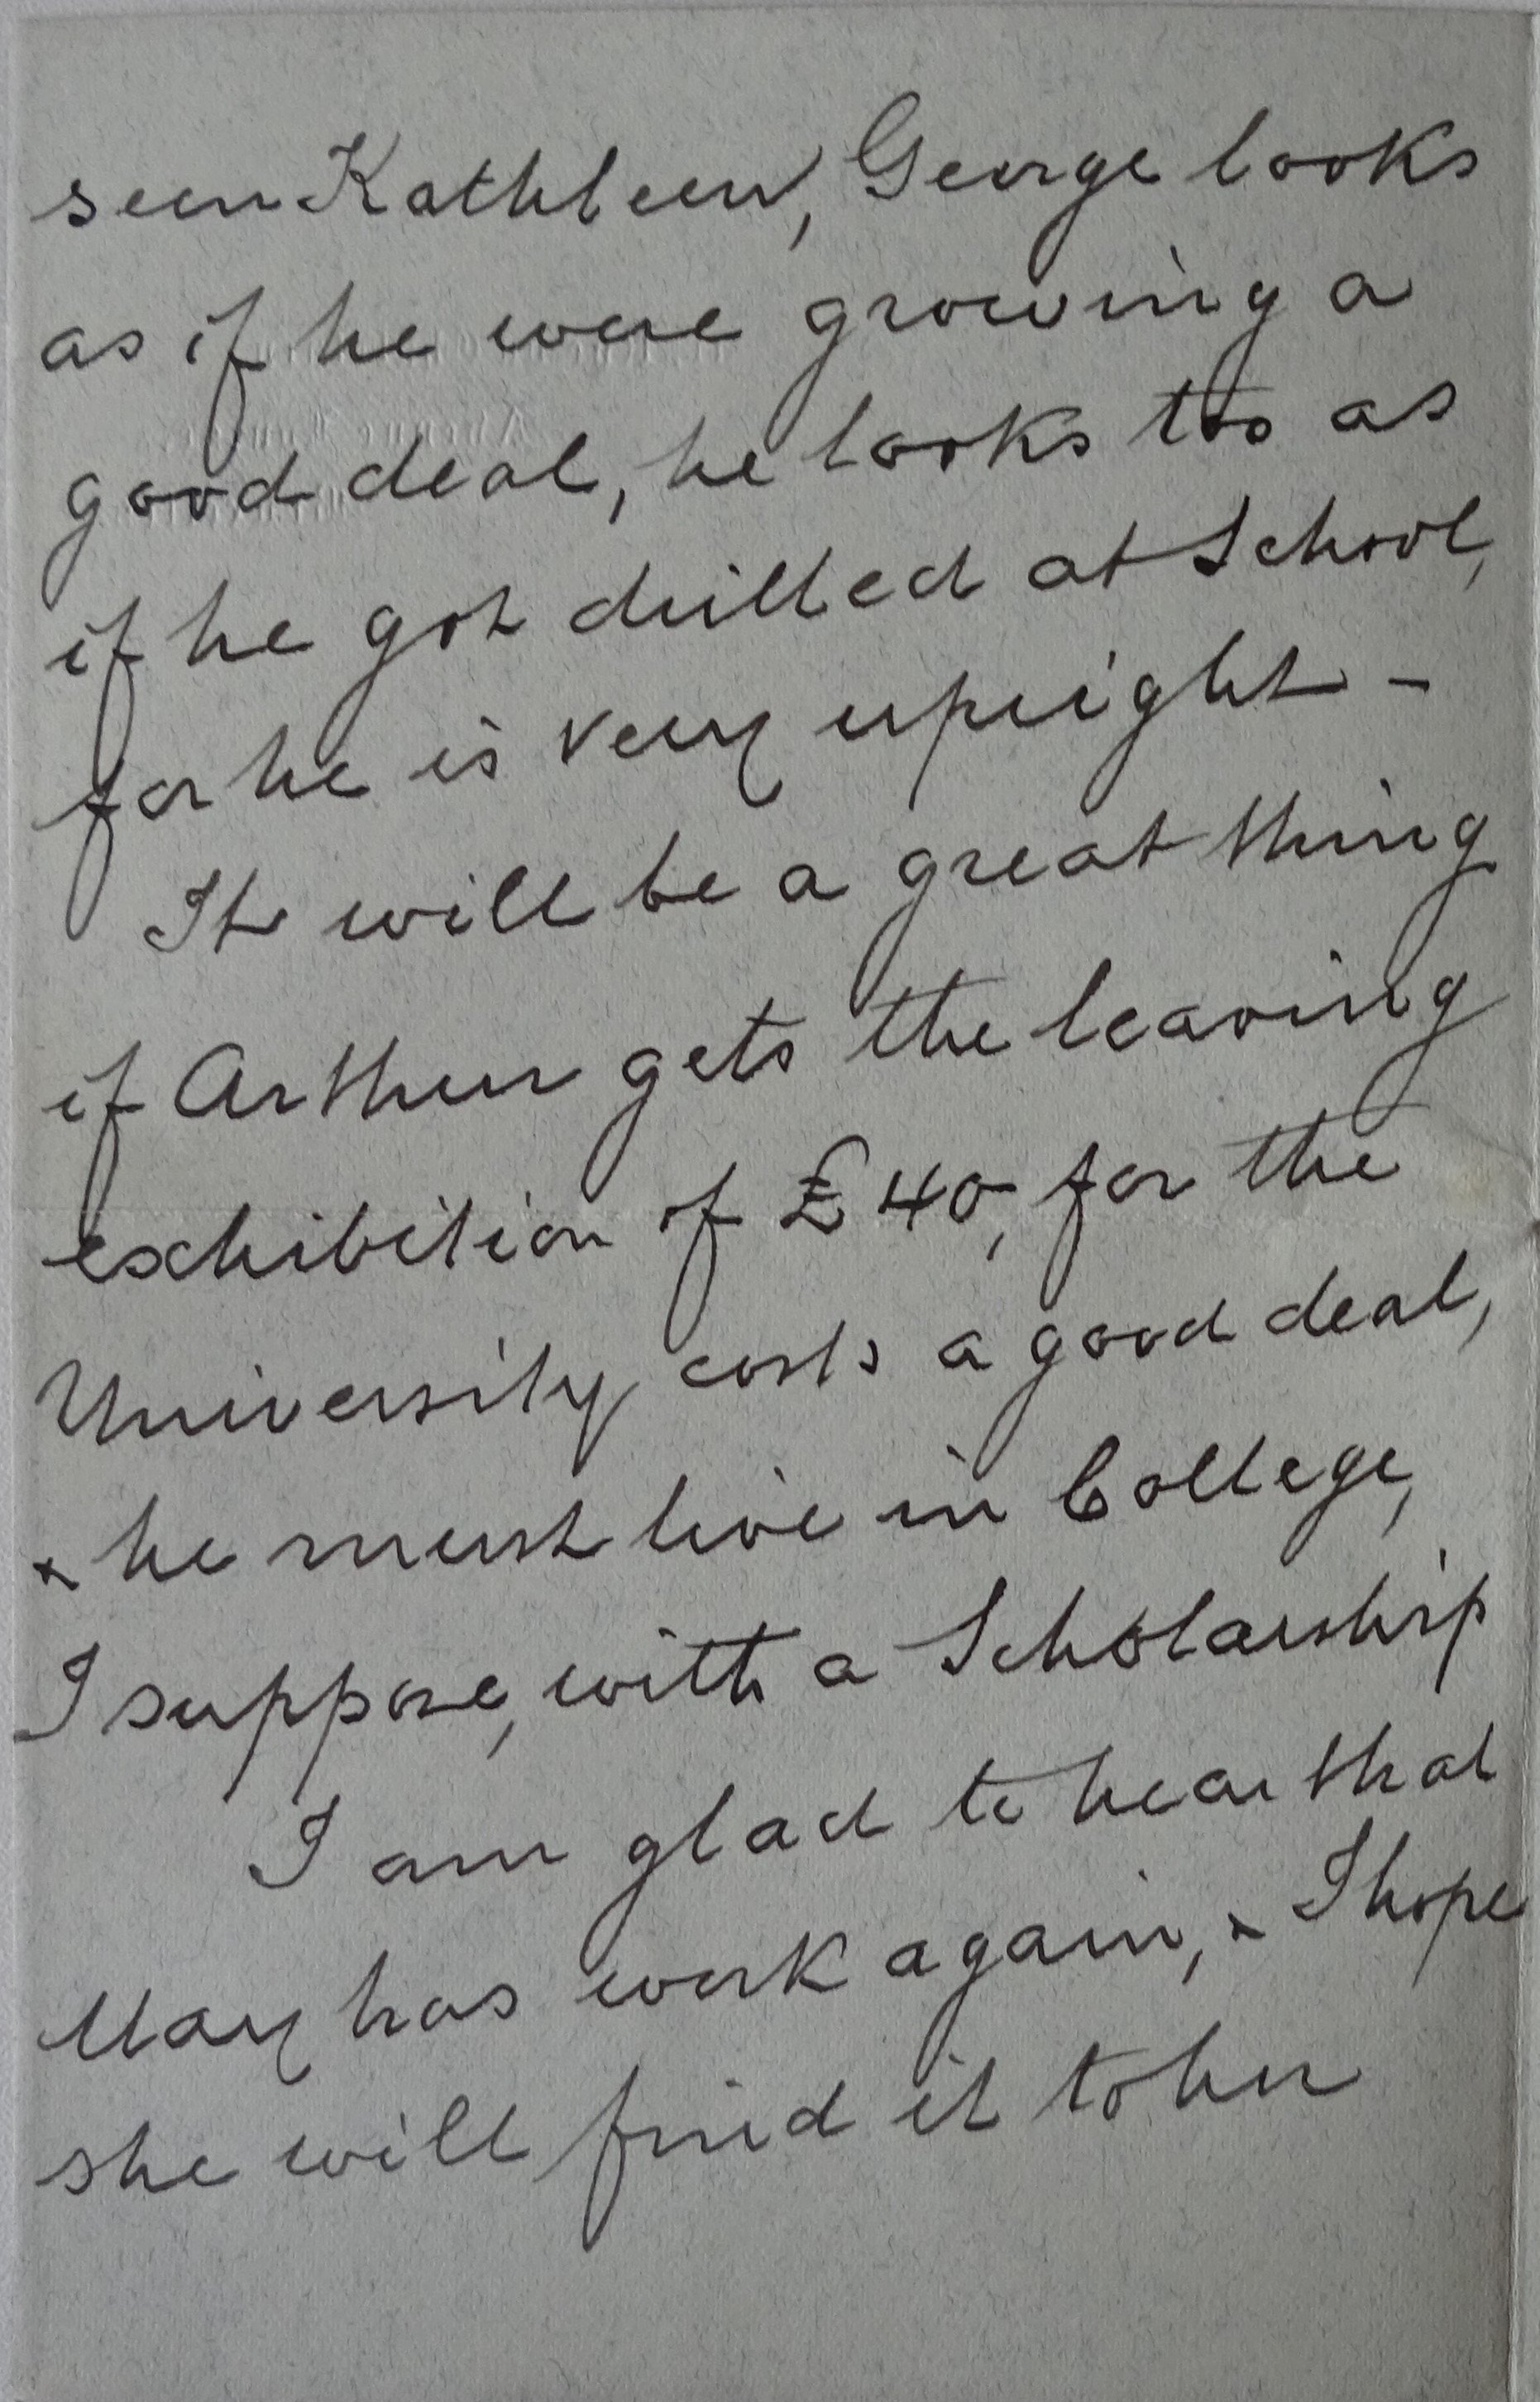 seen Kathleen, George looks
as if he were growing a
good deal, he looks too as
if he got drilled at School,
for he is very upright -
It will be a great thing
if Arthur gets the leaving
exhibition of £40, for the
University costs a good deal,
& he must live in College,
I suppose, with a Scholarship
I am glad to hear that
May has work again, & I hope
she will find it to her